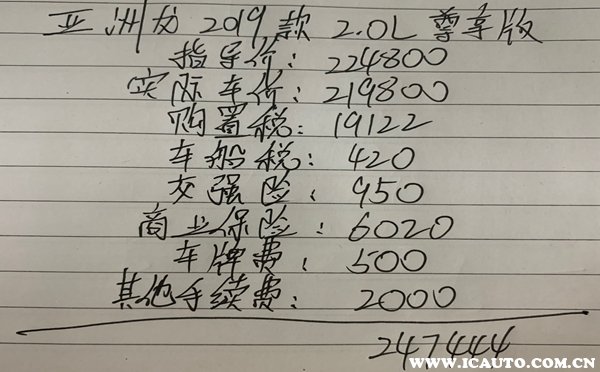 亚洲龙 2019款 2.0L 尊享版
指导价: 224800
实际车价: 219800
购置税: 19122
车船税: 420
交强险: 950
商业保险: 6020
车牌费: 500
其他手续费: 2000
247444
爱卡汽车
WWW.ICAUTO.COM.CN